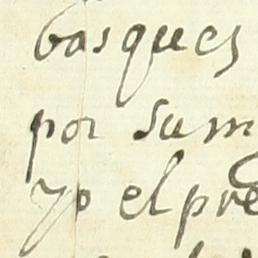 basques
por sum
yo el pre